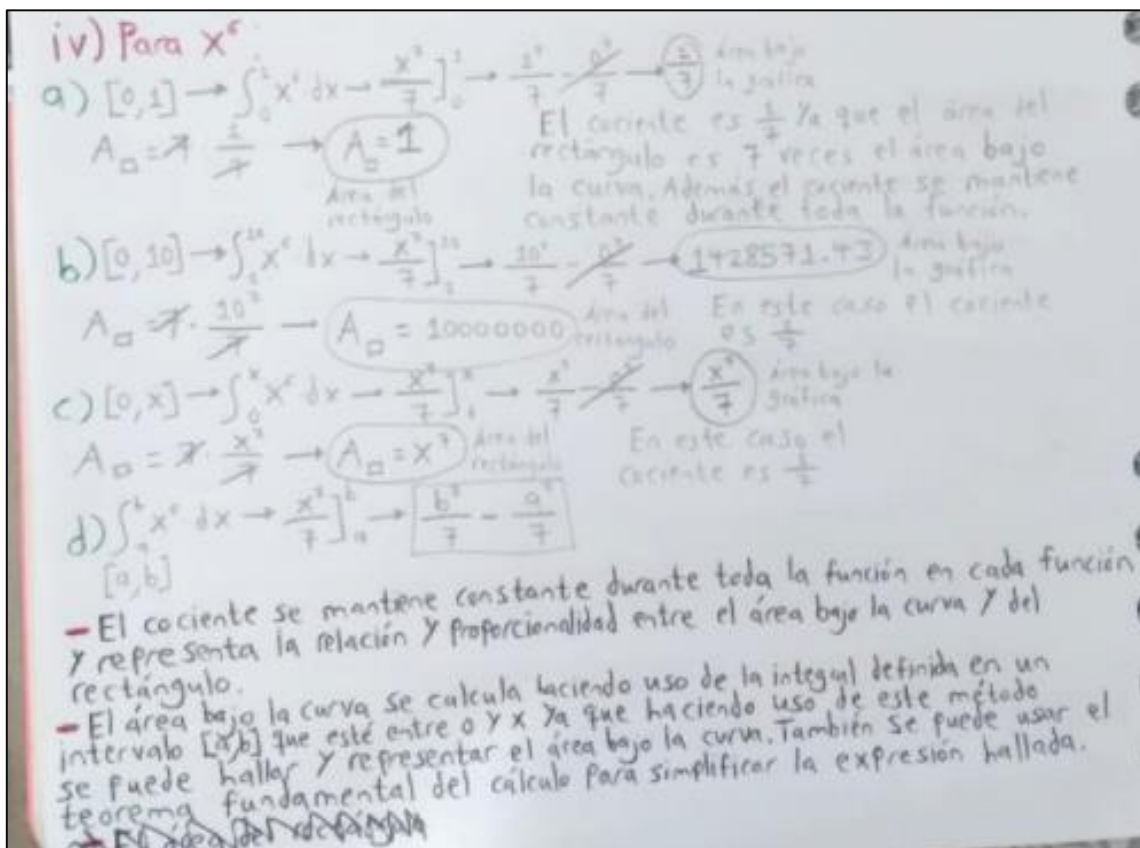 iv) Para x⁶
a) [0,1] → ∫₀¹ x⁶ dx → x⁷/7 ]₀¹ → 1⁷/7 - 0⁷/7 → 1/7 área bajo la gráfica
A□ = 7 · 1/7 → A□ = 1 Área del rectángulo
El cociente es 1/7 ya que el área del
rectángulo es 7 veces el área bajo
la curva. Además el cociente se mantiene
constante durante toda la función.
b) [0,10] → ∫₀¹⁰ x⁶ dx → x⁷/7 ]₀¹⁰ → 10⁷/7 - 0⁷/7 → 1428571.43 Área bajo la gráfica
A□ = 7 · 10⁷/7 → A□ = 10000000 Área del rectángulo
En este caso el cociente
es 1/7
c) [0,x] → ∫₀ˣ x⁶ dx → x⁷/7 ]₀ˣ → x⁷/7 - 0⁷/7 → x⁷/7 área bajo la gráfica
A□ = 7 · x⁷/7 → A□ = x⁷ Área del rectángulo
En este caso el
cociente es 1/7
d) ∫ₐᵇ x⁶ dx → x⁷/7 ]ₐᵇ → b⁷/7 - a⁷/7
[a,b]
- El cociente se mantiene constante durante toda la función en cada función
y representa la relación y proporcionalidad entre el área bajo la curva y del
rectángulo.
- El área bajo la curva se calcula haciendo uso de la integral definida en un
intervalo [a,b] que esté entre 0 y x ya que haciendo uso de este método
se puede hallar y representar el área bajo la curva. También se puede usar el
teorema fundamental del cálculo para simplificar la expresión hallada.